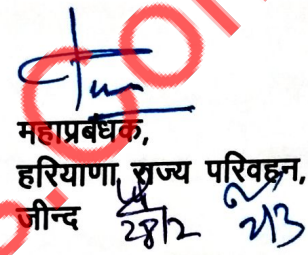 महाप्रबंधक,
हरियाणा राज्य परिवहन,
जीन्द
28/2 2/3